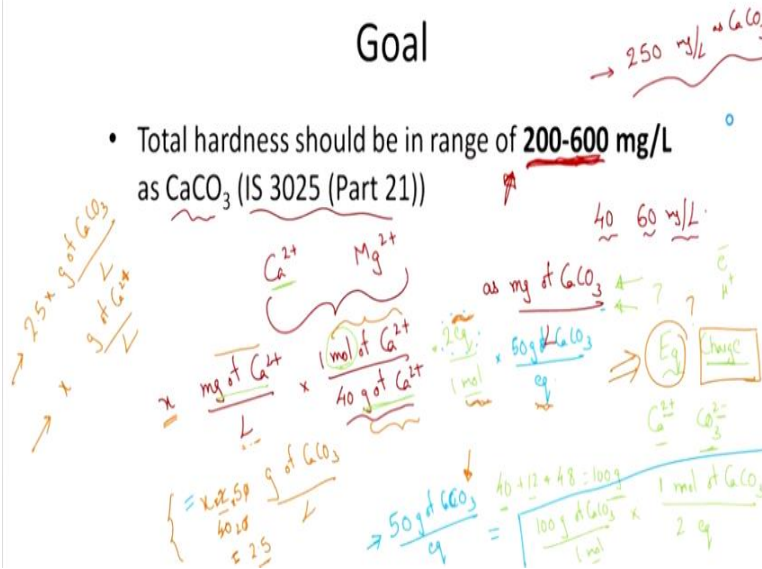 Goal
→ 250 mg/L as CaCO3
• Total hardness should be in range of 200-600 mg/L
as CaCO₃ (IS 3025 (Part 21))
40 60 mg/L.
Ca²⁺ Mg²⁺
as mg of CaCO₃
→ 2.5x g of CaCO3 / L
→ x g of Ca²⁺ / L
x mg of Ca²⁺ / L × 1 mol of Ca²⁺ / 40 g of Ca²⁺ × 2eq / 1 mol × 50g of CaCO3 / eq
? ?
Eq Charge
Ca²⁺ CO₃²⁻
g of CaCO3 / L
= 2.5
40 + 12 + 48 = 100g
→ 50 g of CaCO3 / eq = 100 g of CaCO3 / 1 mol × 1 mol of CaCO3 / 2 eq